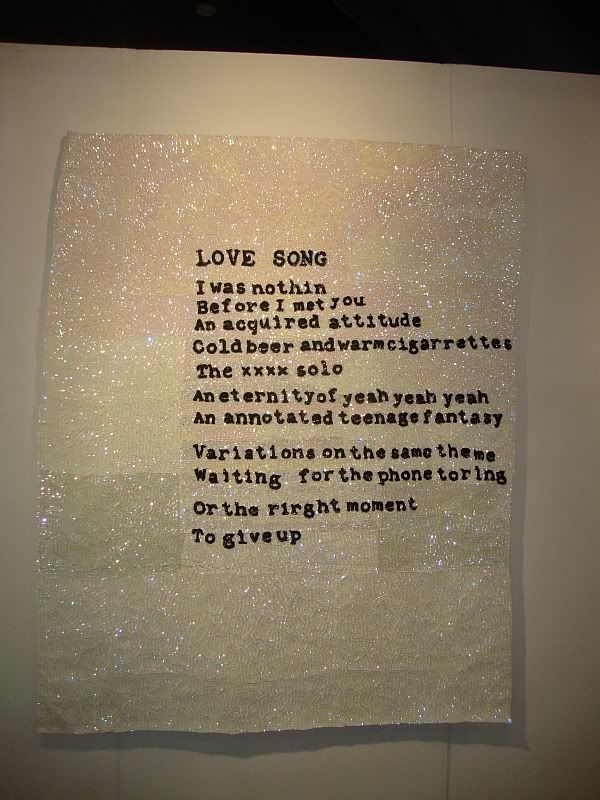 LOVE SONG
I was nothin
Before I met you
An acquired attitude
Cold beer and warm cigarrettes
The xxxx solo
An eternity of yeah yeah yeah
An annotated teenage fantasy
Variations on the same theme
Waiting for the phone to ring
Or the rirght moment
To give up